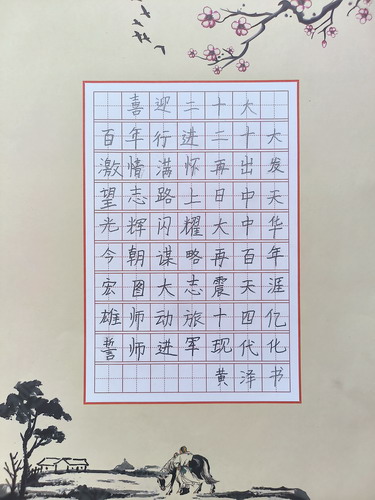 喜迎二十大
百年行进二十大
激情满怀再出发
望志路上日中天
光辉闪耀大中华
今朝谋略再百年
宏图大志震天涯
雄师动旅十四亿
誓师进军现代化
黄泽书